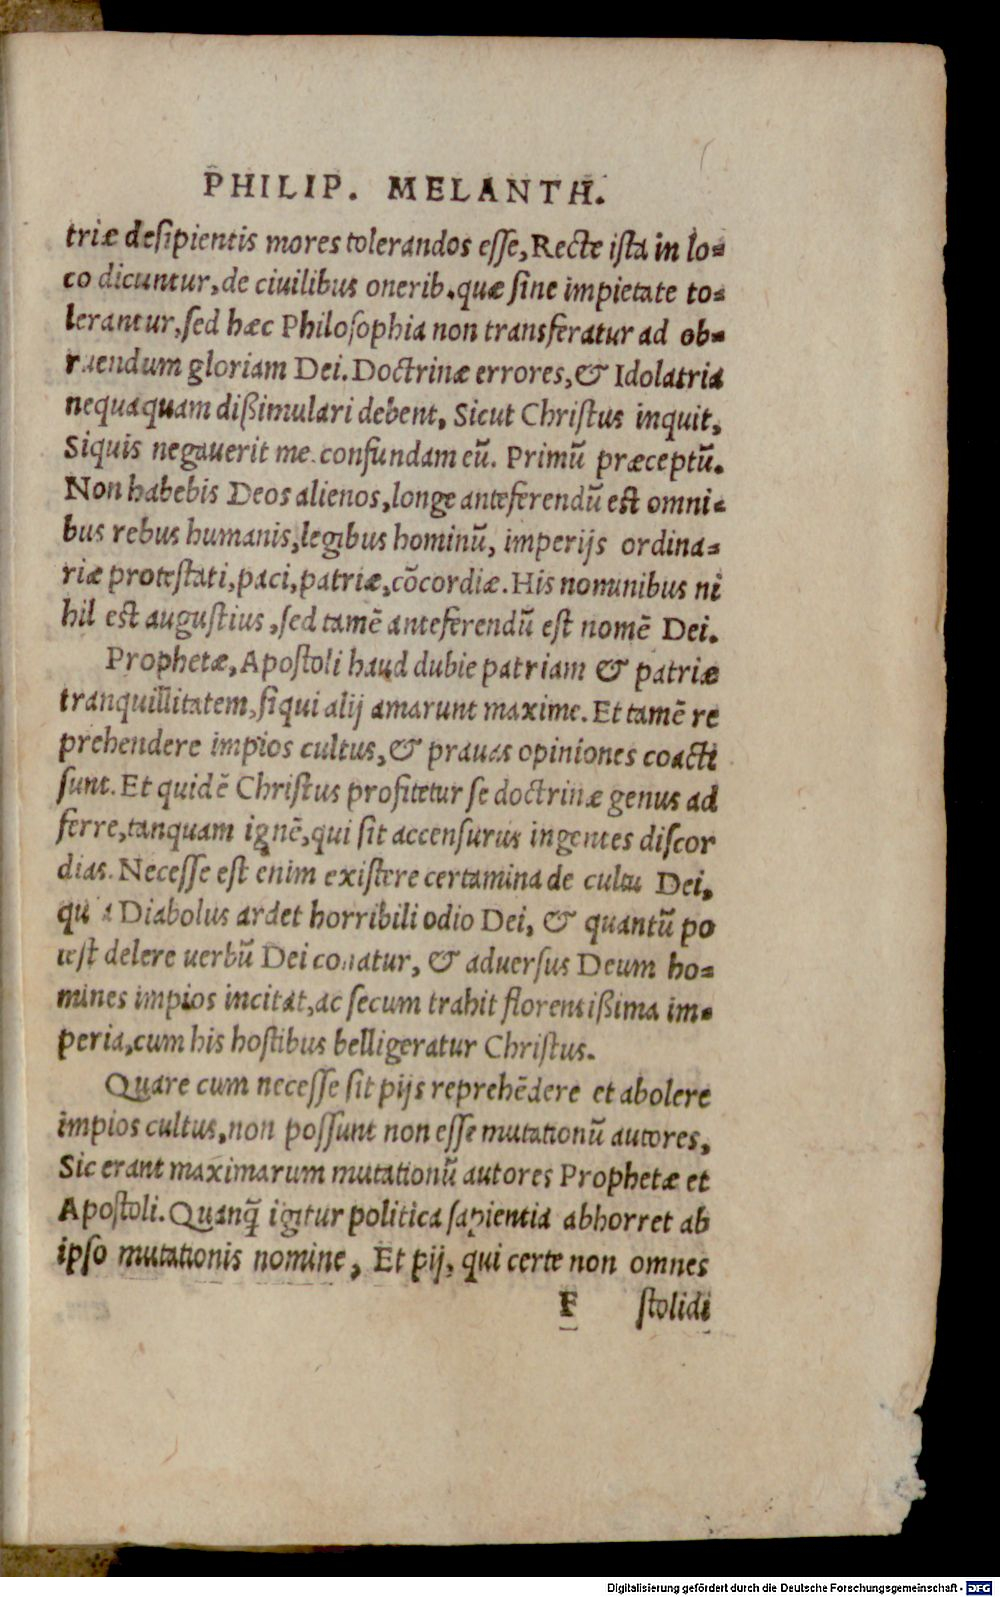 PHILIP. MELANTH.
triæ desipientis mores tolerandos esse, Recte ista in lo=
co dicuntur, de ciuilibus onerib. quæ sine impietate to=
lerantur, sed hæc Philosophia non transferatur ad ob=
ruendum gloriam Dei. Doctrinæ errores, & Idolatria
nequaquam dißimulari debent, Sicut Christus inquit,
Siquis negauerit me confundam eū. Primū præceptū.
Non habebis Deos alienos, longe anteferendū est omni=
bus rebus humanis, legibus hominū, imperijs ordina=
riæ protestati, paci, patriæ, cōcordiæ. His nominibus ni
hil est augustius, sed tamē anteferendū est nomē Dei.
Prophetæ, Apostoli haud dubie patriam & patriæ
tranquillitatem, si qui alij amarunt maxime. Et tamē re
prehendere impios cultus, & prauas opiniones coacti
sunt. Et quidē Christus profitetur se doctrinæ genus ad
ferre, tanquam ignē, qui sit accensurus ingentes discor
dias. Necesse est enim existere certamina de cultu Dei,
quia Diabolus ardet horribili odio Dei, & quantū po
test delere uerbū Dei conatur, & aduersus Deum ho=
mines impios incitat, ac secum trahit florentißima im=
peria, cum his hostibus belligeratur Christus.
Quare cum necesse sit pijs reprehēdere et abolere
impios cultus, non possunt non esse mutationū autores,
Sic erant maximarum mutationū autores Prophetæ et
Apostoli. Quanq̄ igitur politica sapientia abhorret ab
ipso mutationis nomine, Et pij, qui certe non omnes
F stolidi
Digitalisierung gefördert durch die Deutsche Forschungsgemeinschaft - DFG